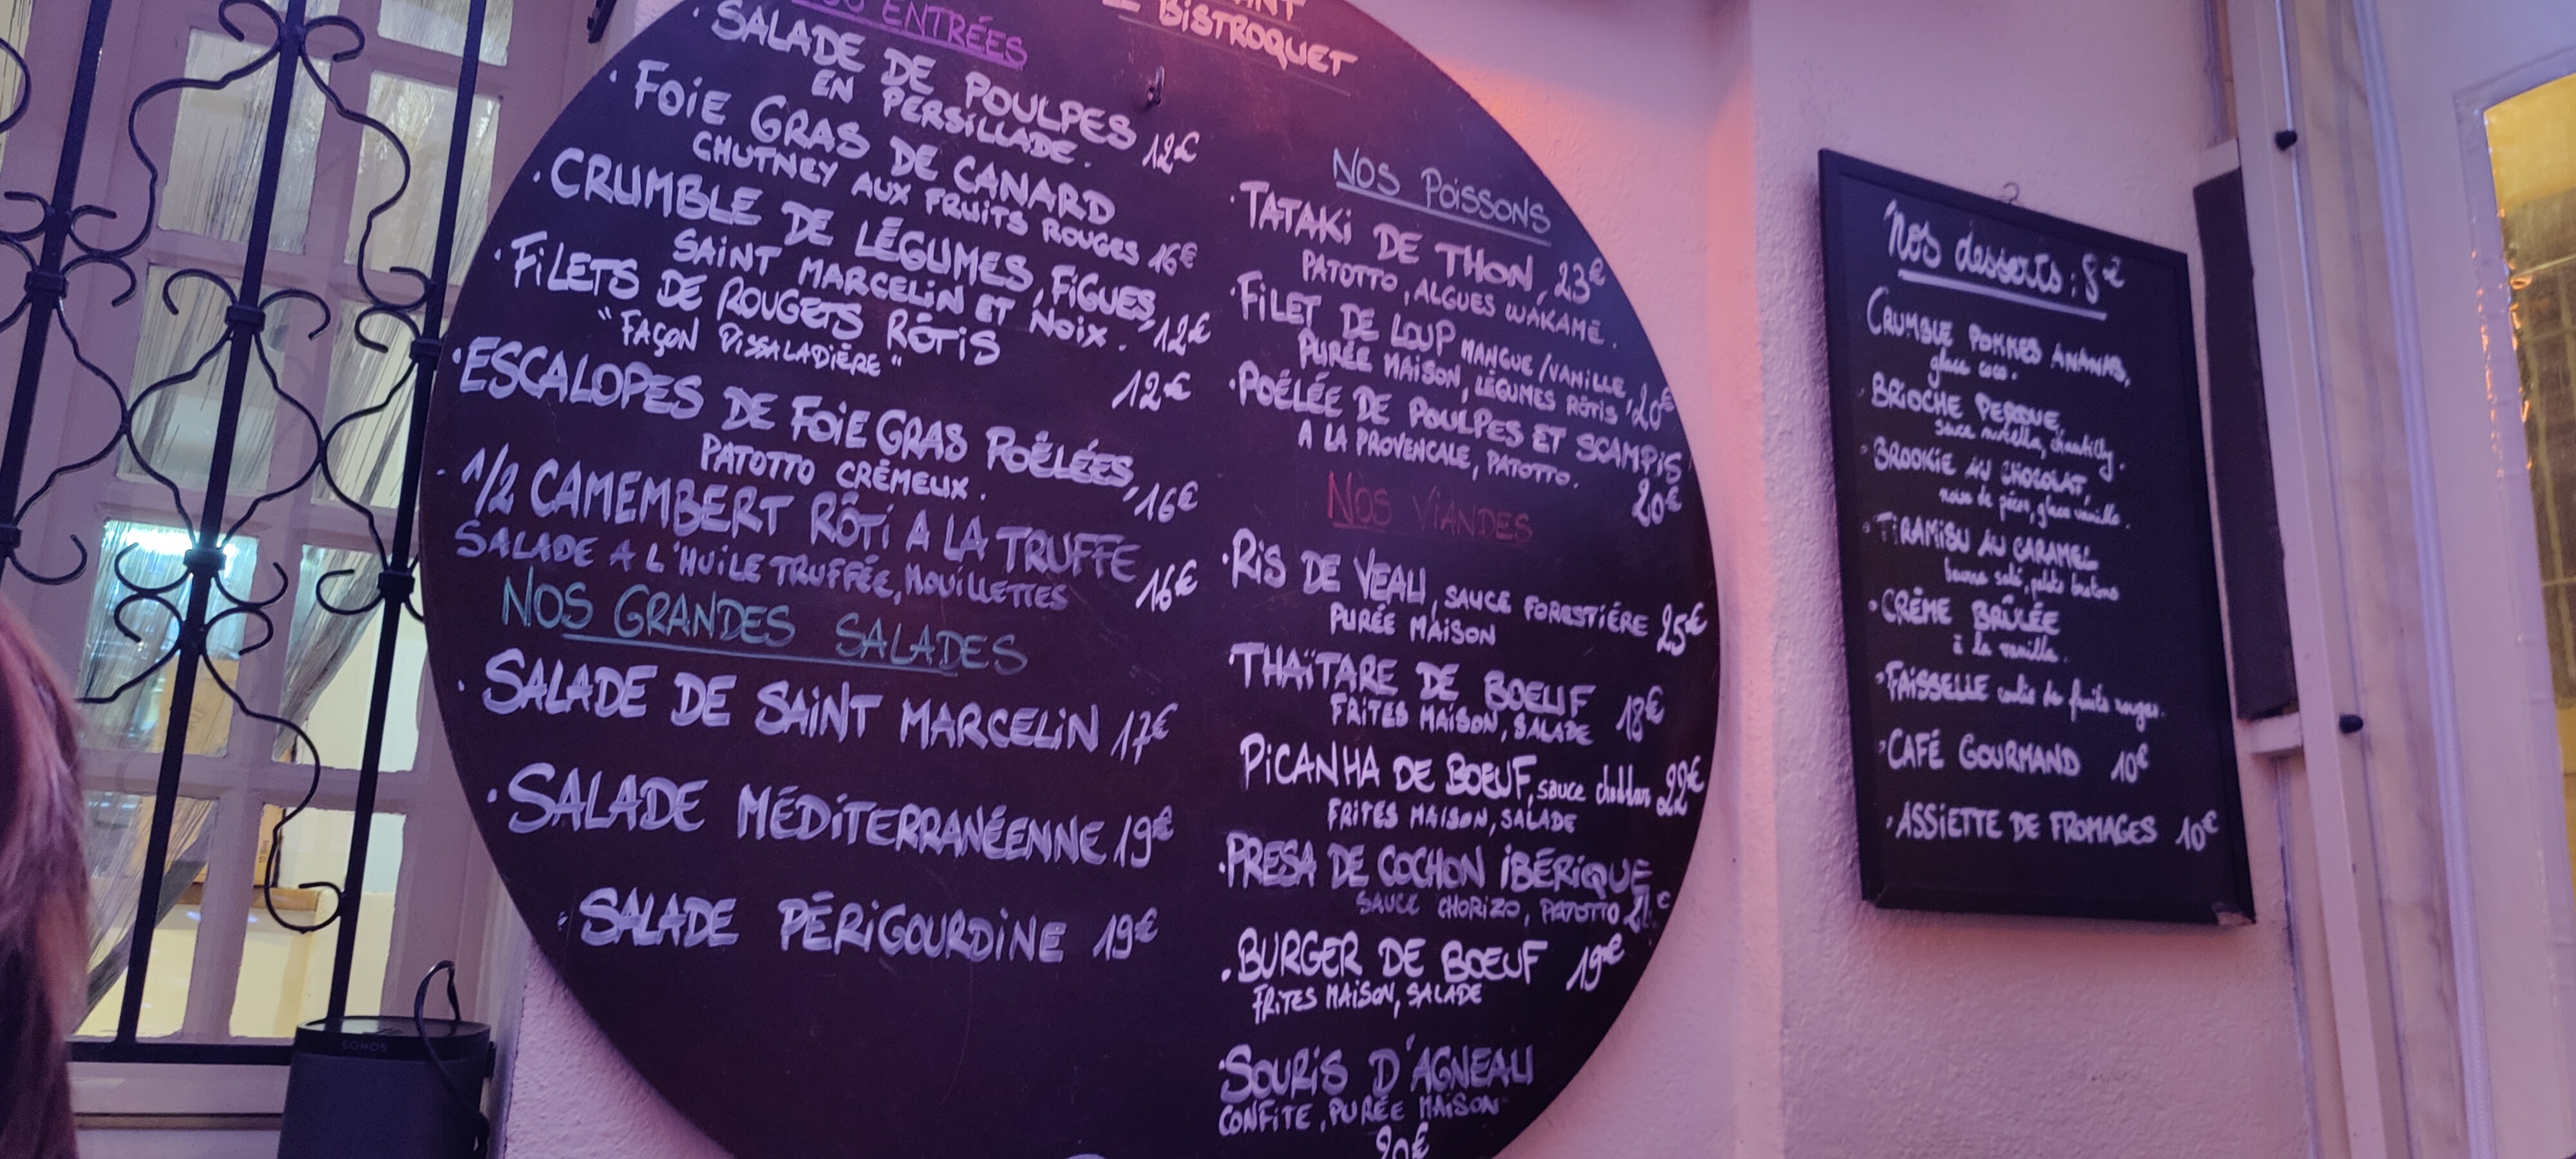 ENTRÉES
SALADE DE POULPES
EN PERSILLADE. 12€
FOIE GRAS DE CANARD
CHUTNEY AUX FRUITS ROUGES 16€
CRUMBLE DE LÉGUMES, FIGUES,
SAINT MARCELIN ET NOIX. 12€
FILETS DE ROUGETS RÔTIS
"FAÇON PISSALADIÈRE"
12€
ESCALOPES DE FOIE GRAS POÊLÉES,
PATOTTO CRÉMEUX. 16€
1/2 CAMEMBERT RÔTI A LA TRUFFE
SALADE A L'HUILE TRUFFÉE, MOUILLETTES 16€
NOS GRANDES SALADES
SALADE DE SAINT MARCELIN 17€
SALADE MÉDITERRANÉENNE 19€
SALADE PÉRIGOURDINE 19€
BISTROQUET
NOS POISSONS
TATAKI DE THON, 23€
PATOTTO, ALGUES WAKAMÉ.
FILET DE LOUP MANGUE/VANILLE,
PURÉE MAISON, LÉGUMES RÔTIS, 20€
POÊLÉE DE POULPES ET SCAMPIS
A LA PROVENCALE, PATOTTO.
20€
NOS VIANDES
RIS DE VEAU, SAUCE FORESTIÉRE 25€
PURÉE MAISON
THAÏTARE DE BOEUF 18€
FRITES MAISON, SALADE
PICANHA DE BOEUF, sauce cheddar 22€
FRITES MAISON, SALADE
PRESA DE COCHON IBÉRIQUE
SAUCE CHORIZO, PATOTTO
BURGER DE BOEUF 19€
FRITES MAISON, SALADE
SOURIS D'AGNEAU
CONFITE, PURÉE MAISON
20€
Nos desserts : 8€
CRUMBLE POMMES ANANAS,
glace coco.
BRIOCHE PERDUE,
sauce nutella, chantilly.
BROOKIE AU CHOCOLAT,
noix de pécan, glace vanille.
TIRAMISU AU CARAMEL
beurre salé, palets bretons
CRÈME BRÛLÉE
à la vanille.
FAISSELLE coulis de fruits rouges.
CAFÉ GOURMAND 10€
ASSIETTE DE FROMAGES 10€
SONOS